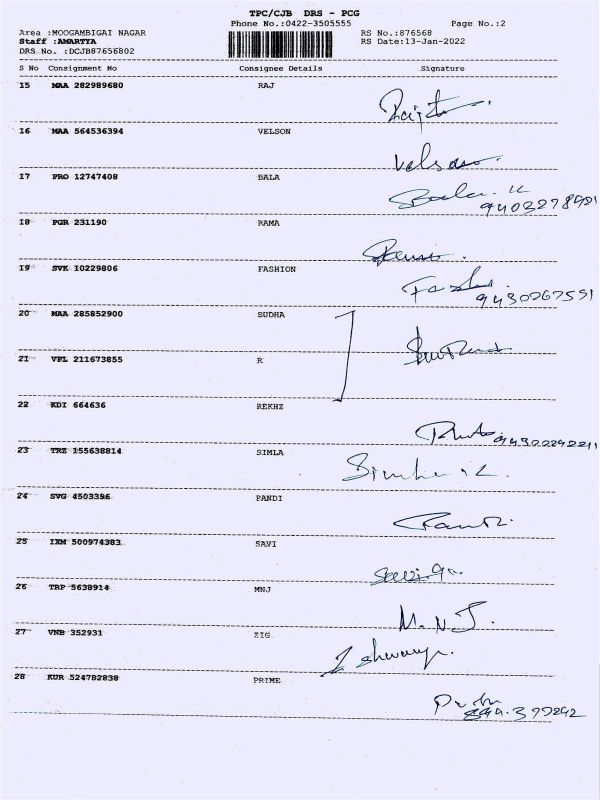 TPC/CJB DRS - PCG
Phone No.:0422-3505555 Page No.:2
Area :MOOGAMBIGAI NAGAR RS No.:876568
Staff :AMARTYA RS Date:13-Jan-2022
DRS No. :DCJB87656802
S No Consignment No Consignee Details Signature
15 MAA 282989680 RAJ
16 MAA 564536394 VELSON
Velson.
17 PRO 12747408 BALA
Bala. K
18 PGR 231190 RAMA
19 SVK 10229806 FASHION
9430267551
20 MAA 285852900 SUDHA
21 VPL 211673855 R
22 KDI 664636 REKHZ
23 TRZ 155638814 SIMLA
24 SVG 4503396 PANDI
25 IXM 500974383 SAVI
26 TRP 5638914 MNJ
M.N.J.
27 VNB 352931 ZIG
28 KUR 524782838 PRIME